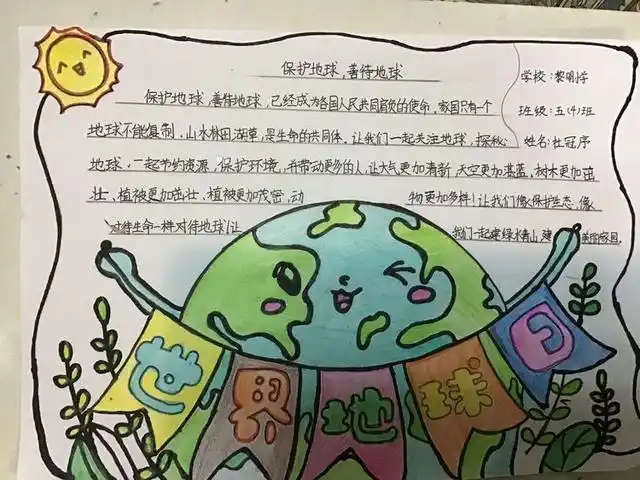 保护地球,善待地球
学校:黎明小学
保护地球,善待地球,已经成为各国人民共同首放的使命,家国只有一个
班级:五(4)班
地球不能复制,山水林田湖草,是生命的共同体,让我们一起关注地球,探秘
姓名:杜冠序
地球,一起节约资源,保护环境,并带动更多的人,让大气更加清新,天空更加湛蓝,树木更加茁
壮、植被更加茁壮、植被更加茂密,动 物更加多样!让我们像保护生态,像
对待生命一样对待地球!让 我们一起建绿水青山,建 美丽家园。
世界地球日